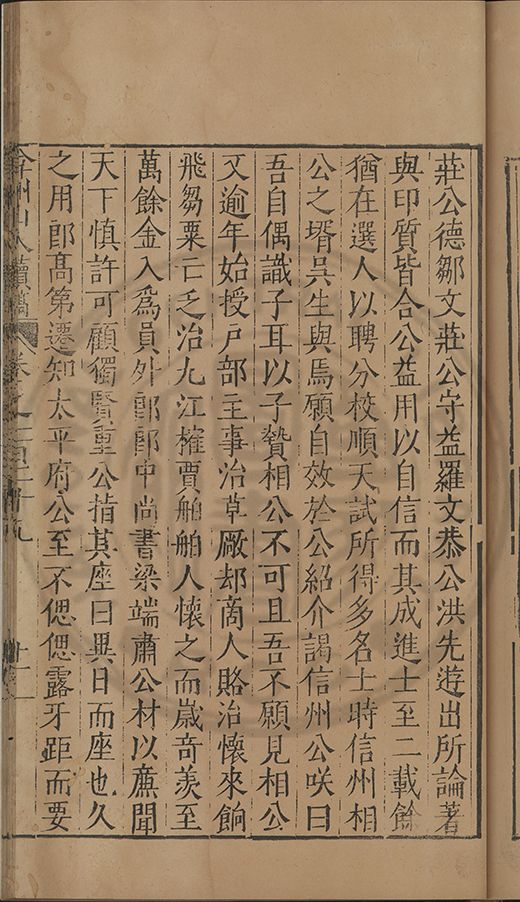 莊公德鄒文莊公守益羅文恭公洪先遊出所論著
與印質皆合公益用以自信而其成進士至二載餘
猶在選人以聘分校順天試所得多名士時信州相
公之壻吳生與馬願自效於公紹介謁信州公咲曰
吾自偶識子耳以子贄相公不可且吾不願見相公
又逾年始授戶部主事治草廠却商人賂治懷來餉
飛芻粟亡乏治九江榷賈舶舶人懷之而嵗竒羨至
萬餘金入爲員外郎郎中尚書梁端肅公材以㢘聞
天下慎許可顧獨賢重公指其座曰異日而座也久
之用郎髙第遷知太平府公至不偲偲露牙距而要
弇州山人續稿 卷之一百二十九 十二